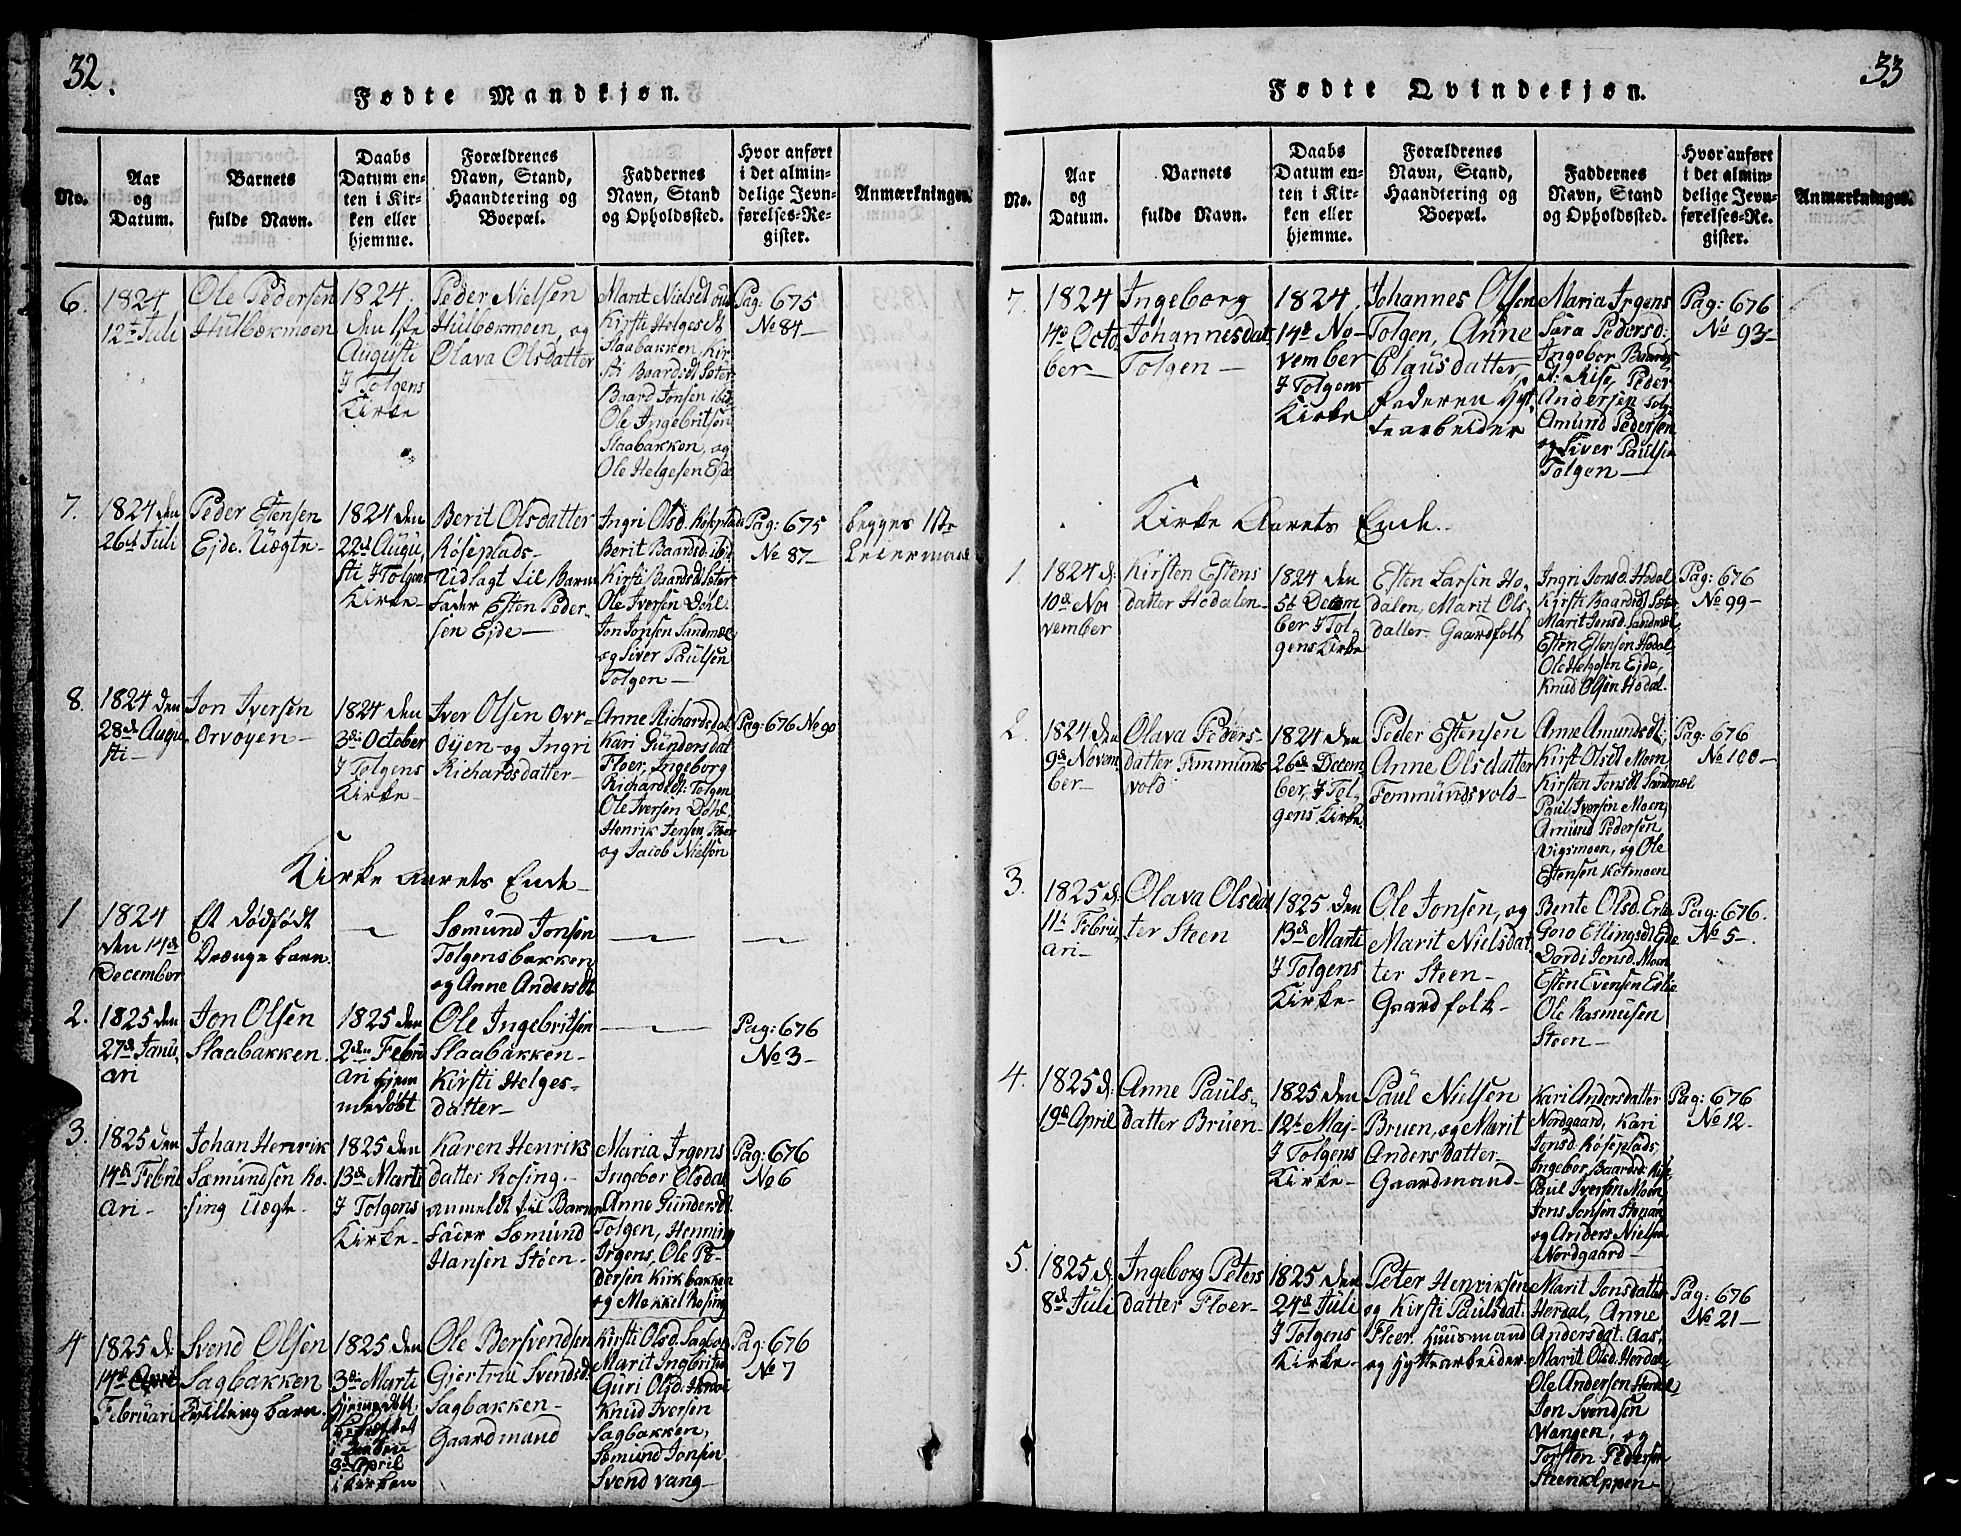 32.
Fødte Mandkjøn.
No.
Aar
og
Datum.
Barnets
fulde Navn.
Daabs
Datum en-
ten i Kir-
ken eller
hjemme.
Forældrenes
Navn, Stand,
Haandtering og
Boepæl.
Faddernes
Navn, Stand
og Opholdssted.
Hvor anført
i det almin-
delige Jevn-
førelses-Re-
gister.
Anmærkninger.
6.
1824
12te Juli
Ole Pedersen
Hulbækmoen
1824.
den 1ste
Augusti
I Tolgens
Kirke
Peder Nielsen
Hulbækmoen, og
Olava Olsdatter
Marit Nielsdt
Kirsti Helgesdt
Slaabakken, Kir-
sti Baardsdt Sæter
Baard Jonsen ibid
Ole Ingebritsen
Slaabakken, og
Ole Helgesen Ejde
Pag: 675
No 84-
7.
1824 den
26d Juli
Peder Estensen
Ejde. Uægte-
1824 den
22d Augu-
sti I Tolgens
Kirke-
Berit Olsdatter
Røseplads-
Udlagt til Barne
Fader Esten Peder-
sen Ejde-
Ingri Olsd. Røseplads
Berit Baardsd. ibid
Kirsti Baardsdt Sæter
Ole Iversen Døhl.
Jon Jonsen Sandmæl
og Siver Paulsen
Tolgen-
Pag: 675
No 87-
begges 1ste
Leiermaal
8.
1824 den
28d Augu-
sti-
Jon Iversen
Orvoyen-
1824 den
3d October
I Tolgens
Kirke-
Iver Olsen Orv-
oijen og Ingri
Richardsdatter-
Anne Richardsdat
Kari Gundersdat
Floer, Ingeborg
Richardsdt: Tolgen
Ole Iversen Døhl,
Henrik Jensen, Floer
og Jacob Nielsen
Pag: 676 No 90
Kirke Aarets Ende-
1
1824
den 14d
December
Et dødfødt
Drænge barn.
Sæmund Jonsen
Tolgensbakken
og Anne Andersdt
2.
1825 den
27d Janu-
ari
Jon Olsen
Slaabakken.
1825 den
2den Febru
ari hjem-
medøbt
Ole Ingebritsen
Slaabakken-
Kirsti Helges-
datter-
Pag: 676
No 3-
3.
1825 den
14d Febru
ari-
Johan Henrik
Sæmundsen Ro-
sing Uægte-
1825 den
13d Marti
I Tolgens
Kirke-
Karen Henriks
datter Rosing.-
anmeldt til Barne
Fader Sæmund
Hansen Støen-
Maria Irgens
Ingebor Olsdat
Anne Gundersdt.
Tolgen, Henning
Irgens, Ole Pe-
dersen Kirkbakken
og Mekkel Rosing
Pag: 676
No 6
4
1825 d:
14d April
Februari
Svend Olsen
Sagbakken
Tvilling barn.
1825 den
3d Marti
3d April
i Kirken
Ole Bersvendsen
Gjertru Svendsdt
Sagbakken-
Gaardmand
Kirsti Olsd. Sagbak
Marit Ingbritsd
Guri Olsd: Herdal
Knud Iversen
Sagbakken,
Sæmund Jonsen
Svend vang-
Pag: 676
No 7
33
Fødte Qvindekjøn.
No.
Aar
og
Datum.
Barnets
fulde Navn.
Daabs
Datum en-
ten i Kir-
ken eller
hjemme.
Forældrenes
Navn, Stand,
Haandtering og
Boepæl.
Faddernes
Navn, Stand
og Opholdssted.
Hvor anført
i det almin-
delige Jevn-
førelses-Re-
gister.
Anmærkninger.
7.
1824
14d Octo-
ber-
Ingeborg
Johannesdat
Tolgen-
1824.
14d No-
vember
I Tolgens
Kirke
Johannes Olsen
Tolgen, Anne
Clausdatter,
Faderen Hyt-
tearbeider
Maria Irgens
Sara Pedersd:
Ingebor Baards
d. Rise, Peder
Andersen Tolg.
Amund Pedersen
og Siver Paulsen
Tolgen-
Pag: 676
No 93-
Kirke Aarets Ende.
1.
1824 d:
10d No-
vember
Kirsten Estens
datter Hodalen-
1824 den
5d Decem
ber I Tol-
gens Kirke
Esten Larsen Ho-
dalen, Marit Ols-
datter. Gaardfolk
Ingri Jonsd. Hodal
Kirsti Baardsdt Sæter
Marit Jonsd. Sandmæl
Esten Estensen Hodal
Ole Helgesen Ejde,
Knud Olsen Hodal-
Pag: 676
No 99-
2.
1824 den
9d Novem
ber-
Olava Peders-
datter Femmunds
vold
1824 den
26d Decem-
ber, I Tol-
gens Kirke.
Peder Estensen
Anne Olsdatter
Femmundsvold-
Anne Amundsdt,
Kirst Olsdt Moen
Kirsten Jonsdt Sandmæl
Paul Iversen Moen,
Amund Pedersen
Vigsmoen, og Ole
Estensen Kotmoen
Pag: 676
No 100-
3.
1825 d:
11t Febru-
ari-
Olava Olsdat
ter Steen
1825 den
13d Marti
I Tolgens
Kirke-
Ole Jonsen, og
Marit Nielsdat
ter Steen-
Gaardfolk-
Bente Olsd. Erlie
Goro Ellingsdt Ejde
Dordi Jonsd. Moen
Esten Evensen Erlie
Ole Rasmusen
Steen-
Pag: 676.
No 5-.
4.
1825 d:
19d April
Anne Pauls-
datter Bruen-
1825 den
12t Maj-
I Tolgens
Kirke-
Paul Nielsen
Bruen, og Marit
Andersdatter-
Gaardmand-
Kari Andersdatter
Nordgaard, Kari
Jonsd. Røseplads,
Ingebor Baardsd. Rise
Paul Iversen Moen,
Jens Jonsen
og Anders Nielsen
Nordgaard-
Pag: 676
No 12-
5.
1825 d:
8d Juli
Ingeborg Peters
datter Floer-
1825 den
24d Juli
I Tolgens
Kirke-
Peter Henriksen
og Kirsti Paulsdat.
Floer. Huusmand
og Hyttearbeider-
Marit Jonsdatter
Herdal, Anne
Andersdat: Aas,
Marit Olsd. Herdal
Ole Andersen Herdal
Jon Svendsen
Wangen, og
Torsten Pedersen
Steenkloppen-
Pag: 676
No 21-